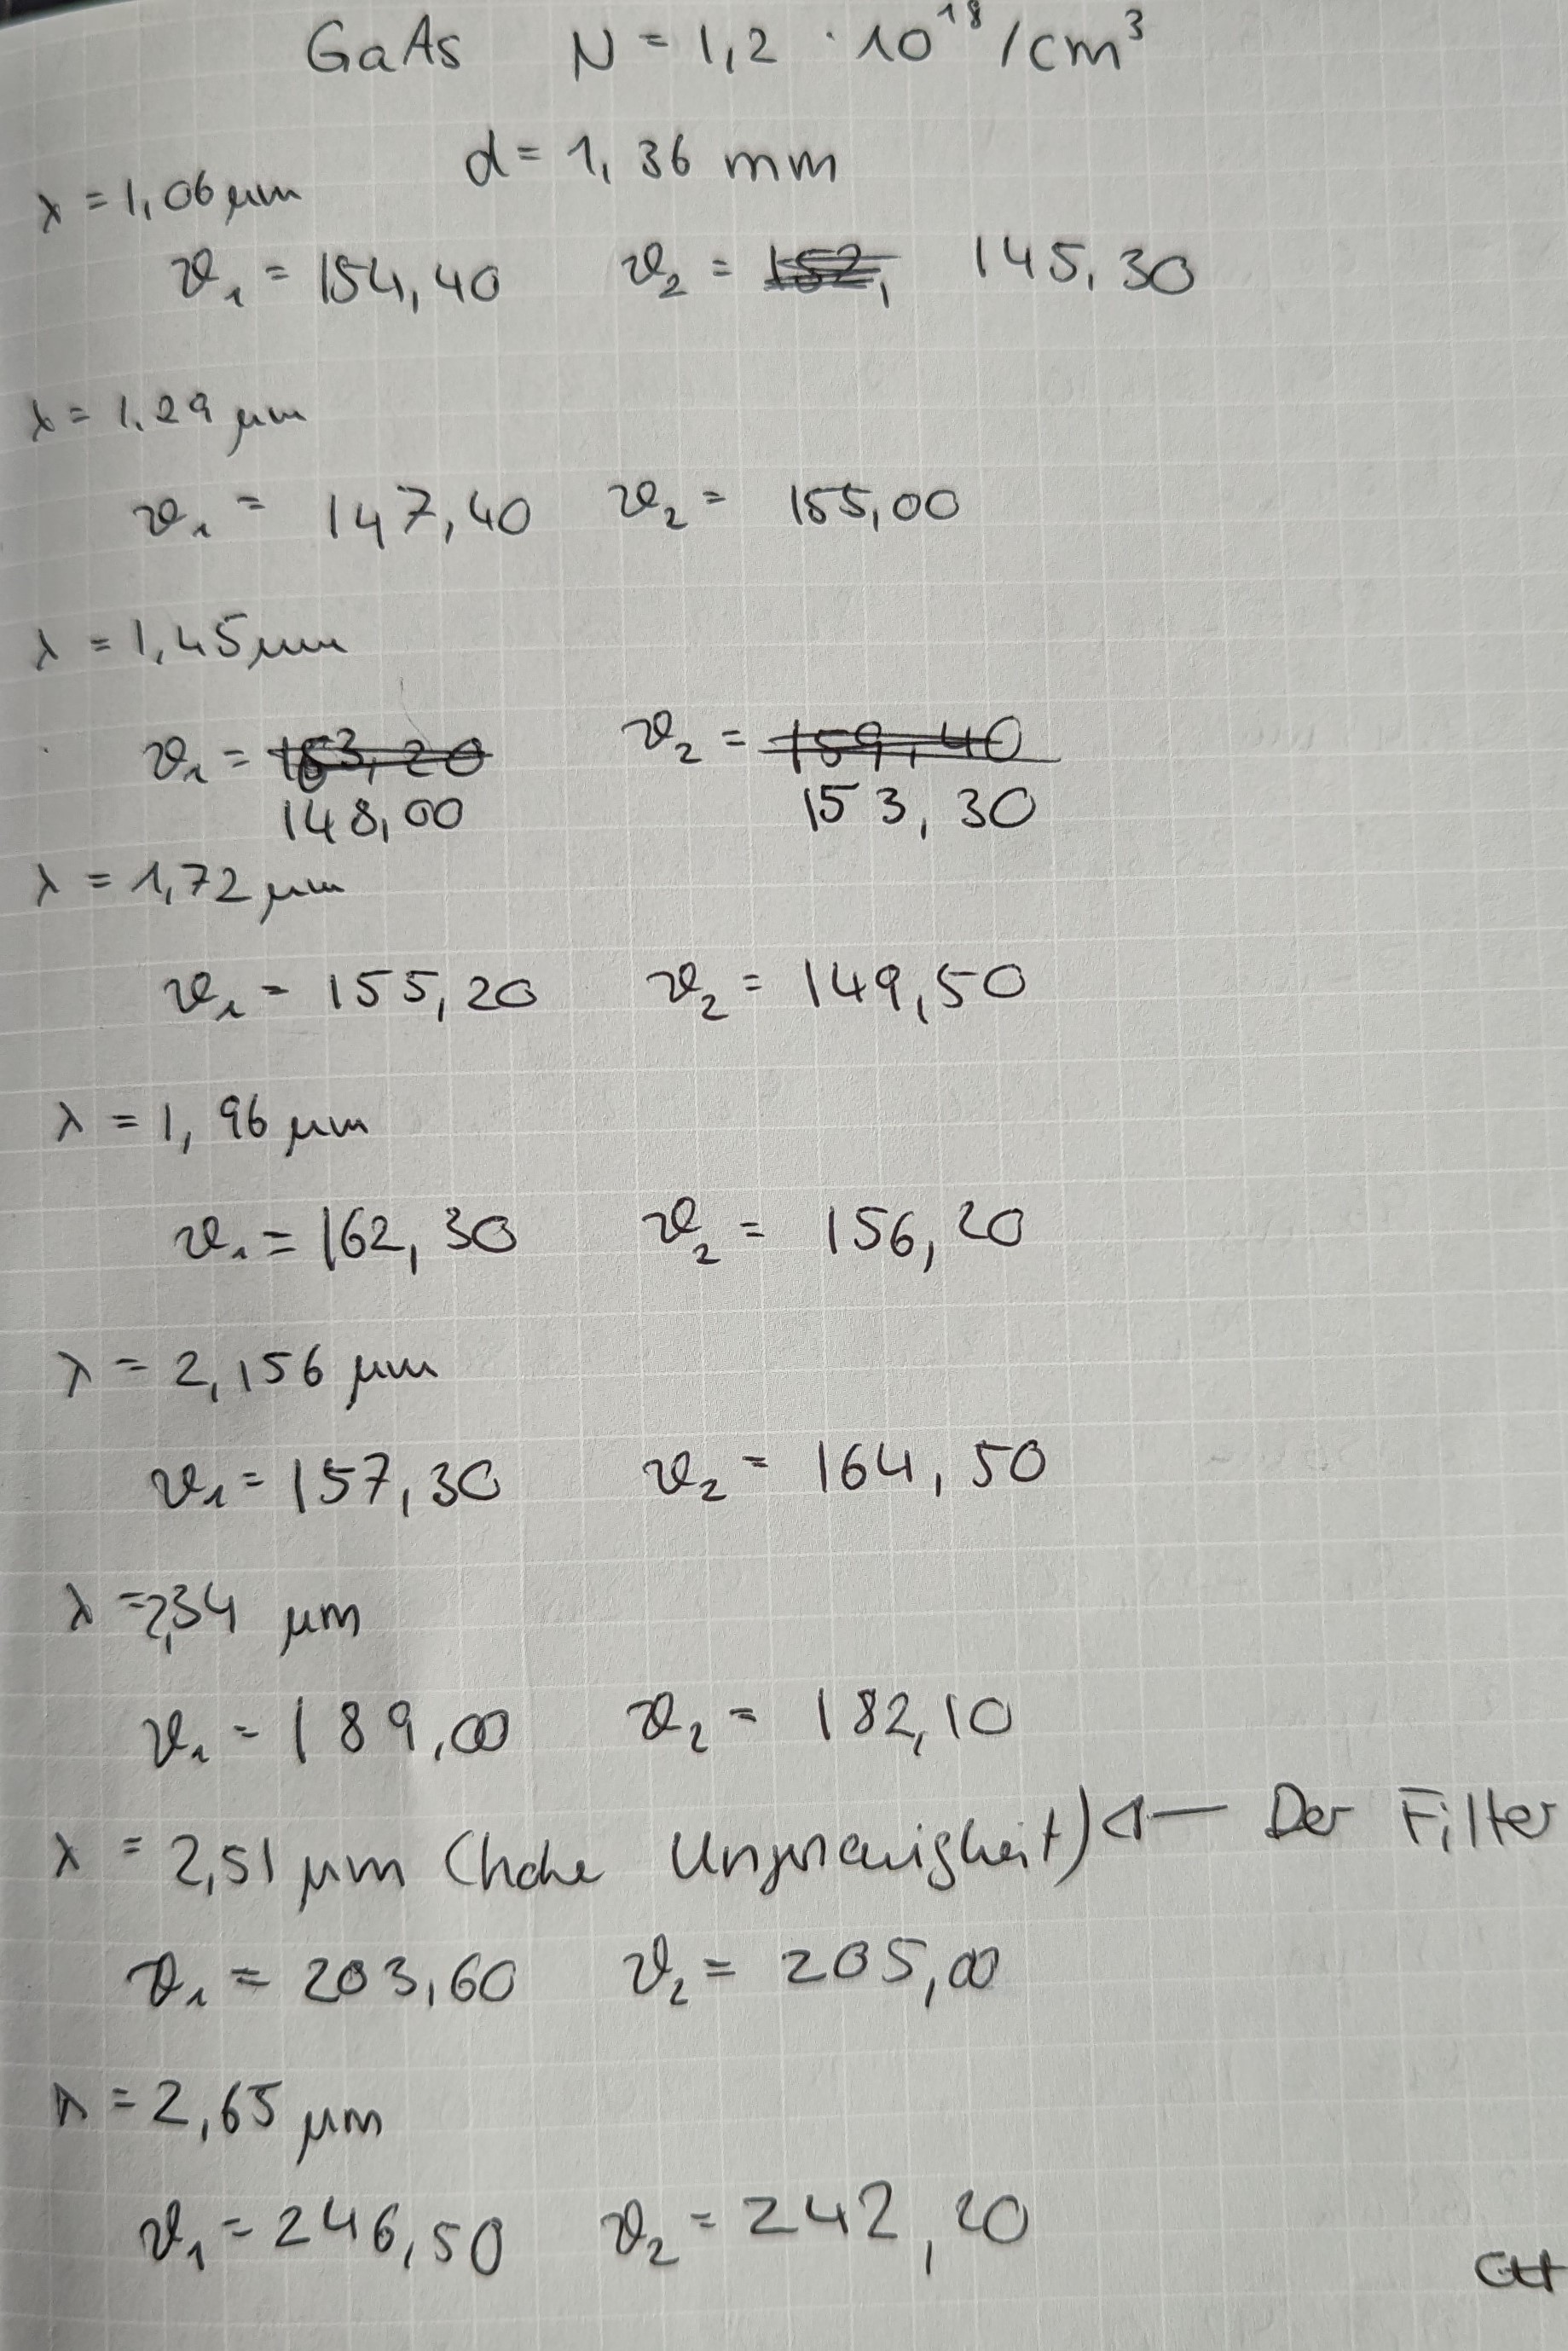 GaAs N = 1,2 · 10¹⁸ /cm³
d = 1,36 mm
λ = 1,06 μm
ϑ₁ = 154,40 ϑ₂ = 152, 145,30
λ = 1,29 μm
ϑ₁ = 147,40 ϑ₂ = 155,00
λ = 1,45 μm
ϑ₁ = 153,20 ϑ₂ = 159,40
148,00 153,30
λ = 1,72 μm
ϑ₁ = 155,20 ϑ₂ = 149,50
λ = 1,96 μm
ϑ₁ = 162,30 ϑ₂ = 156,20
λ = 2,156 μm
ϑ₁ = 157,30 ϑ₂ = 164,50
λ = 2,34 μm
ϑ₁ = 189,00 ϑ₂ = 182,10
λ = 2,51 μm (hohe Ungenauigkeit) ← Der Filter
ϑ₁ = 203,60 ϑ₂ = 205,00
λ = 2,65 μm
ϑ₁ = 246,50 ϑ₂ = 242,20